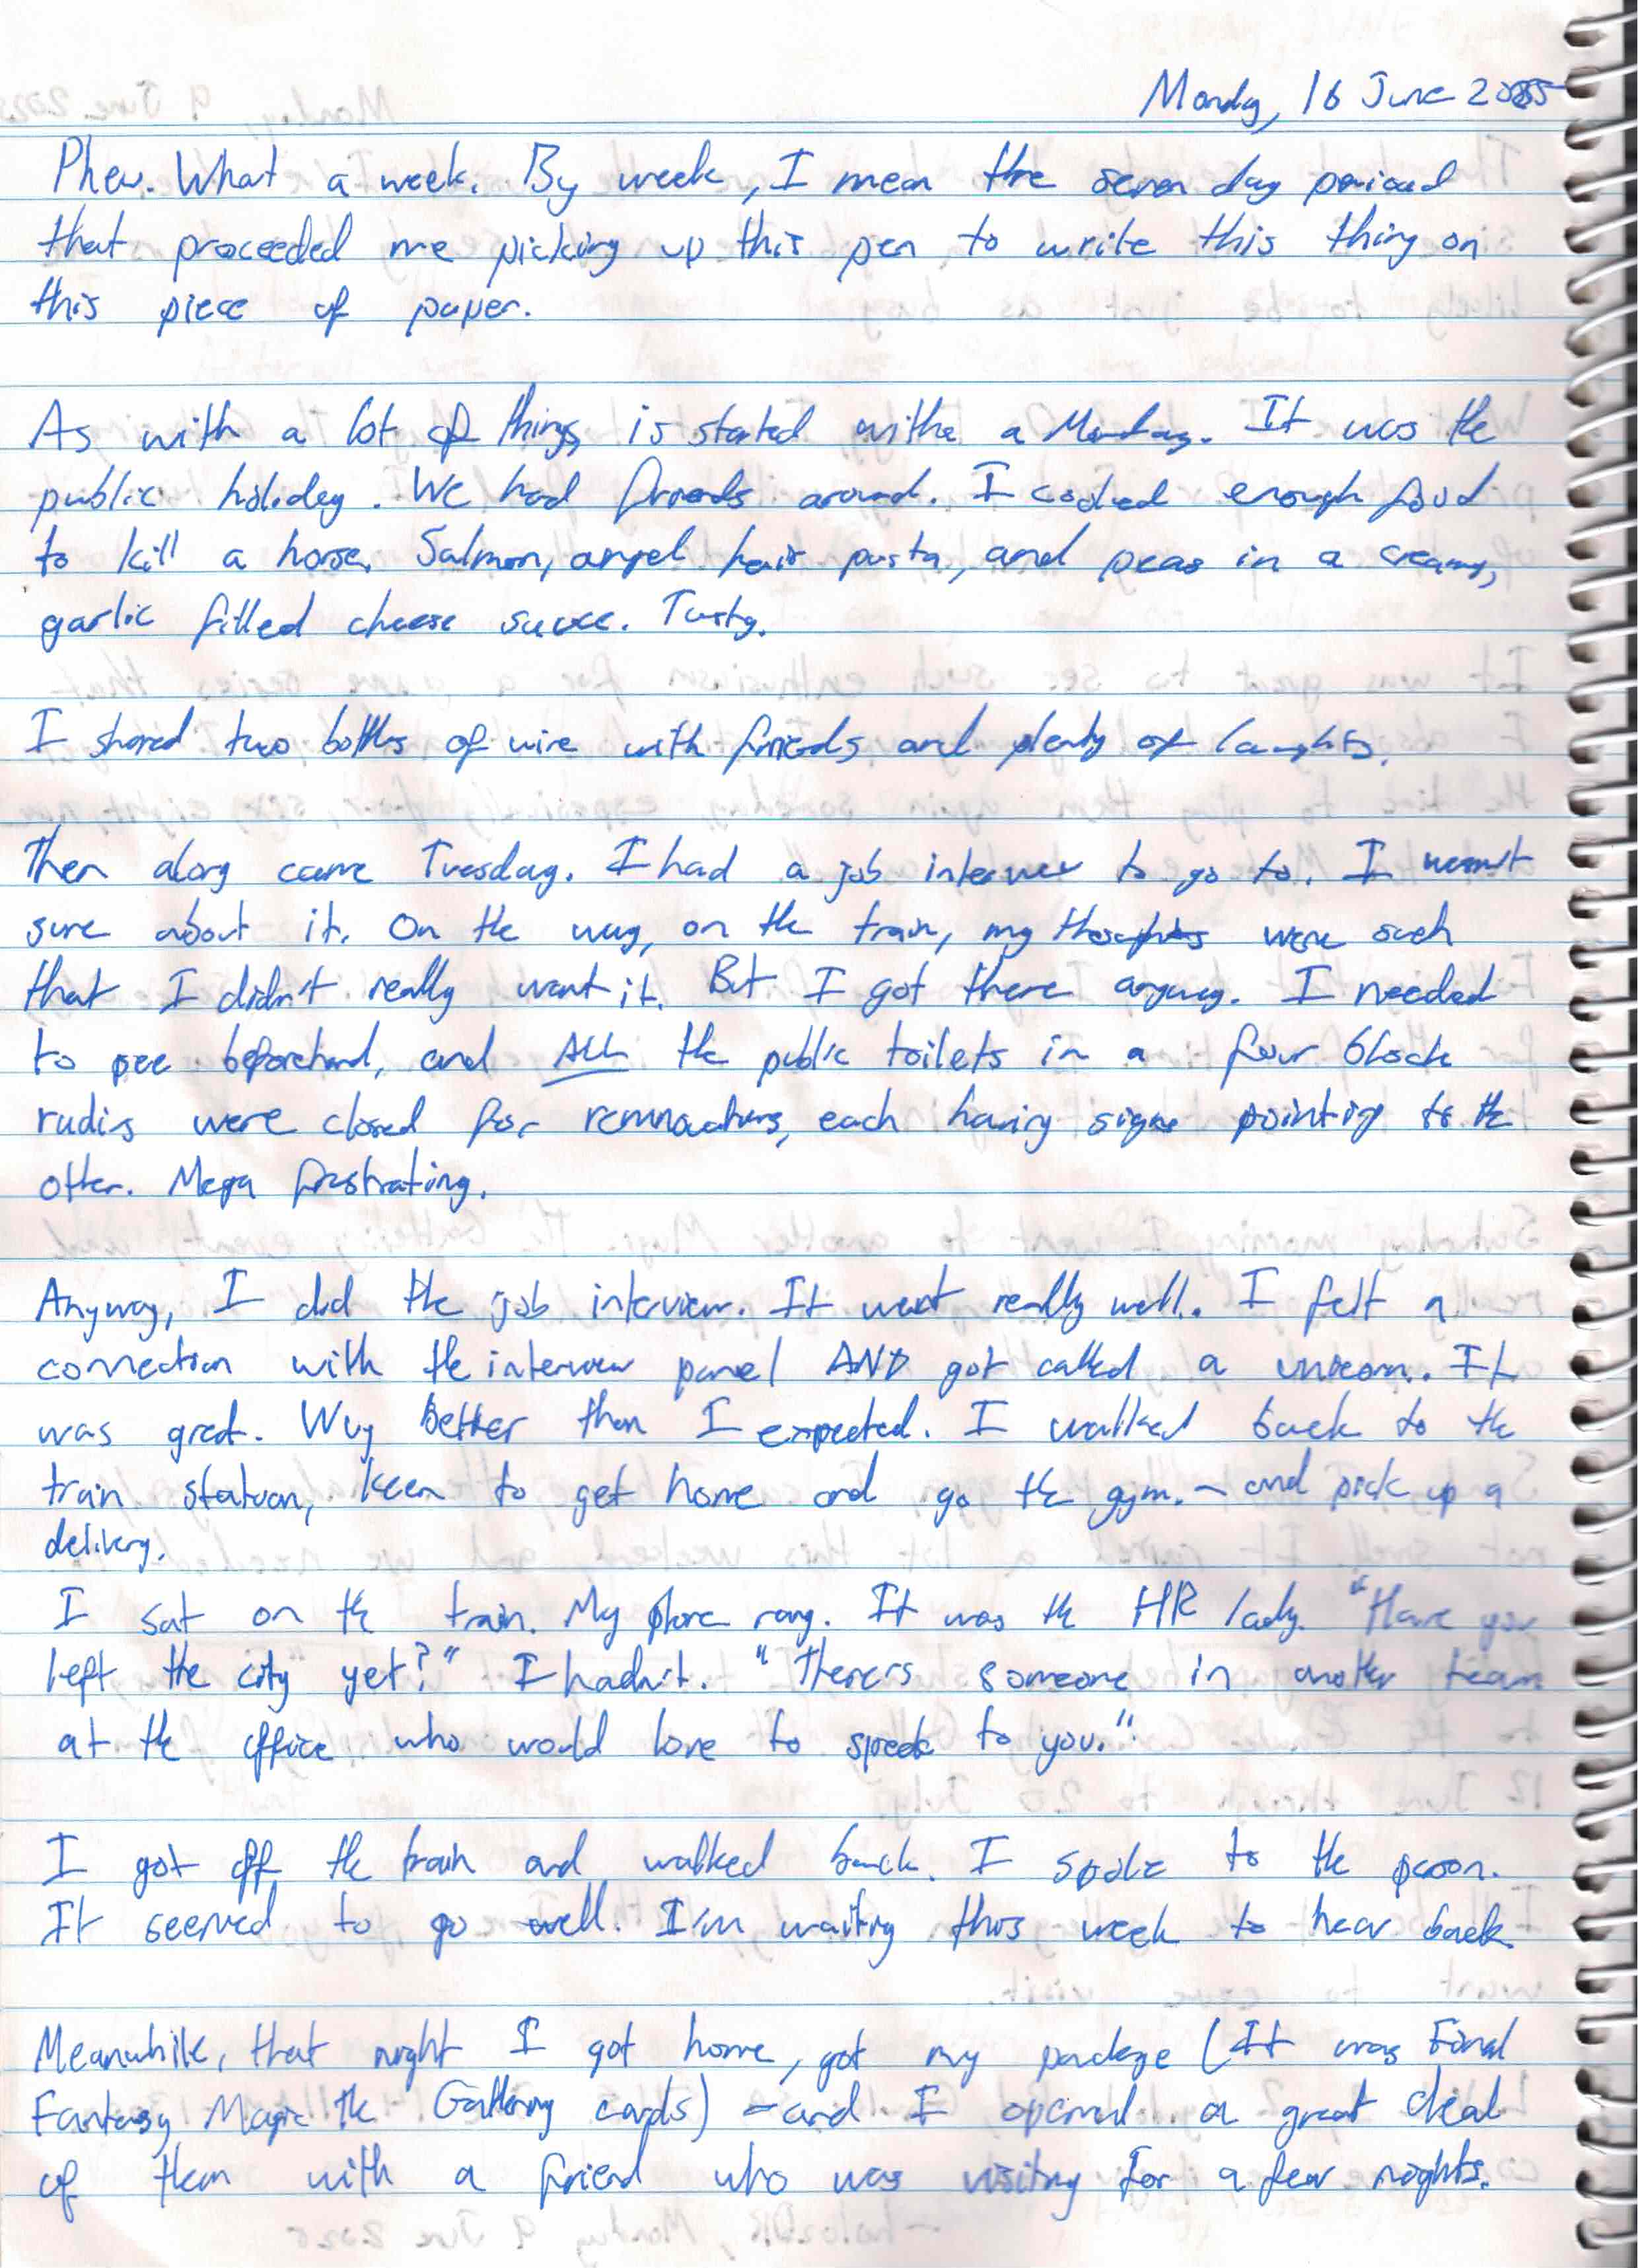 Monday, 16 June 2025
Phew. What a week. By week, I mean the seven day period
that proceeded me picking up this pen to write this thing on
this piece of paper.
As with a lot of things, is started withe a Monday. It was the
public holiday. We had friends around. I cooked enough food
to kill a horse. Salmon, angel hair pasta, and peas in a creamy,
garlic filled cheese sauce. Tasty.
I shared two bottles of wine with friends, and plenty of laughs.
Then along came Tuesday. I had a job interview to go to. I wasn't
sure about it. On the way, on the train, my thoughts were such
that I didn't really want it. But I got there anyway. I needed
to pee beforehand, and ALL the public toilets in a four block
radius were closed for renovations, each having signs pointing to the
other. Mega frustrating.
Anyway, I did the job interview. It went really well. I felt a
connection with the interview panel AND got called a unicorn. It
was great. Way better than I expected. I walked back to the
train station, keen to get home and go the gym. - and pick up a
delivery.
I sat on the train. My phone rang. It was the HR lady. "Have you
left the city yet?" I hadn't. "There's someone in another team
at the office who would love to speak to you."
I got off the train and walked back. I spoke to the person.
It seemed to go well. I'm waiting this week to hear back.
Meanwhile, that night I got home, got my package (It was Final
Fantasy Magic the Gathering cards) - and I opened a great deal
of them with a friend who was visiting for a few nights.